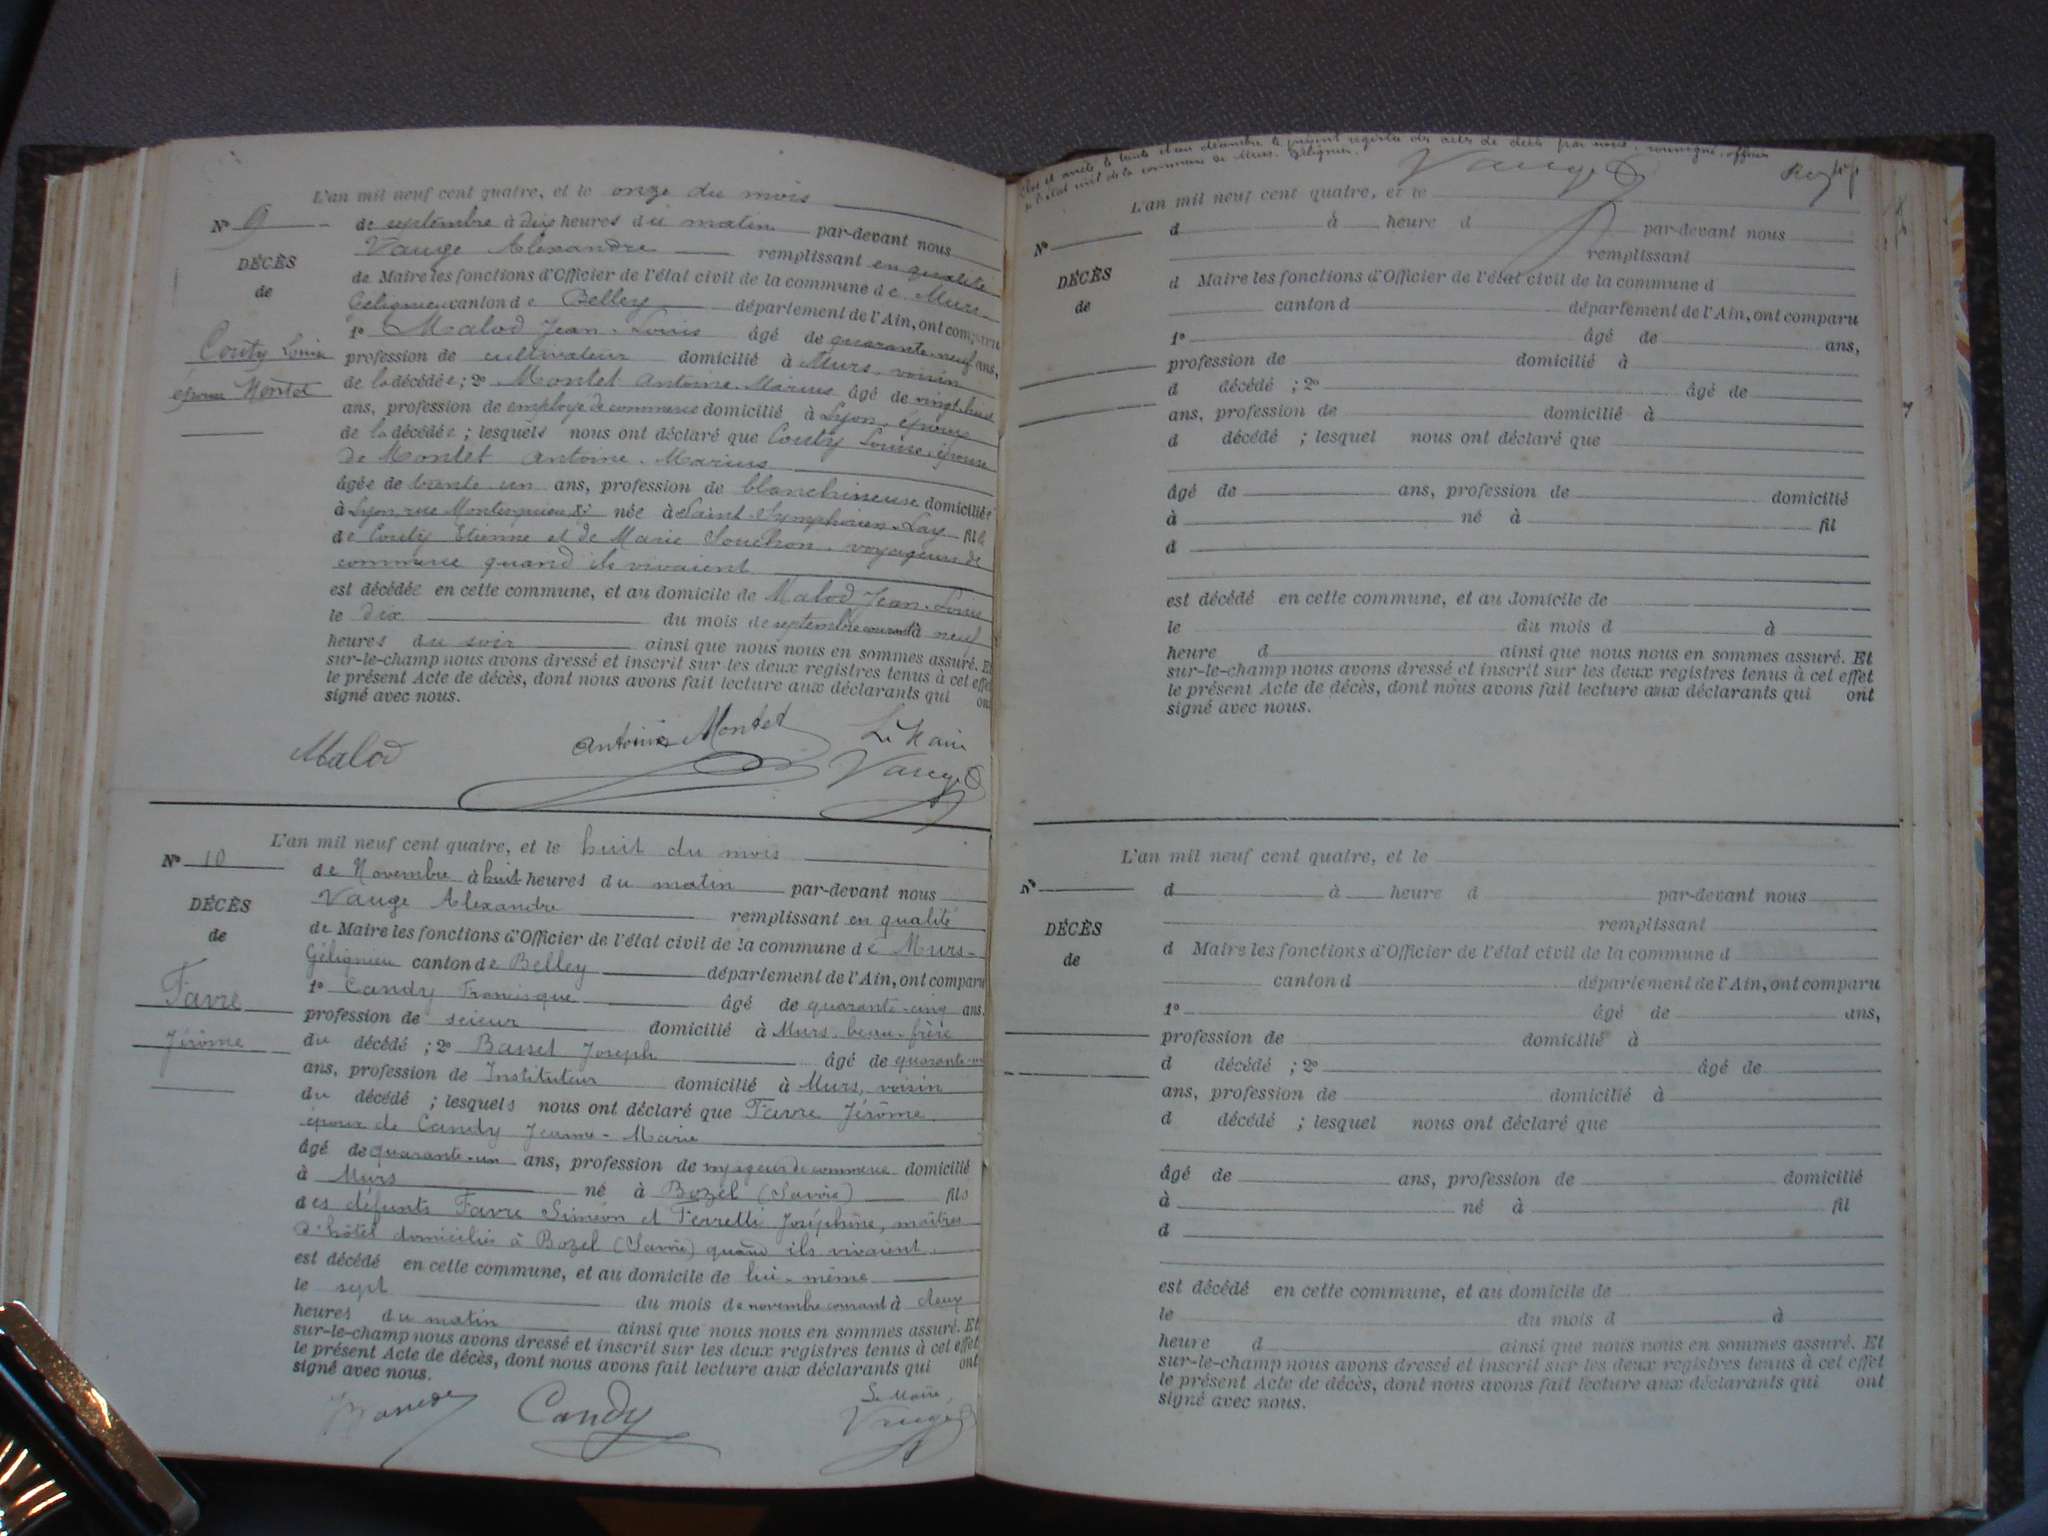 L'an mil neuf cent quatre, et le onze du mois
N° 9 de septembre à dix heures du matin par-devant nous
Vauge Alexandre remplissant en qualité
DÉCÈS
de
de Maire les fonctions d'Officier de l'état civil de la commune de Murs-
Gélignieu canton de Belley département de l'Ain, ont comparu
1° Malod Jean-Louis âgé de quarante-neuf ans,
Couty Louise
épouse Montet
profession de cultivateur domicilié à Murs, voisin
de la décédée ; 2° Montet Antoine Marius âgé de vingt-huit
ans, profession de employé de commerce domicilié à Lyon, époux
de la décédée ; lesquels nous ont déclaré que Couty Louise, épouse
de Montet Antoine-Marius
âgée de trente un ans, profession de blanchisseuse domiciliée
à Lyon, rue née à Saint-Symphorien-Lay fille
de Couty Etienne et de Marie Souchon, voyageurs de
commerce quand ils vivaient
est décédée en cette commune, et au domicile de Malod Jean-Louis
le dix du mois de septembre courant à neuf
heures du soir ainsi que nous nous en sommes assuré. Et
sur-le-champ nous avons dressé et inscrit sur les deux registres tenus à cet effet
le présent Acte de décès, dont nous avons fait lecture aux déclarants qui ont
signé avec nous.
Malod Antoine Montet Le Maire
Vauge
L'an mil neuf cent quatre, et le huit du mois
N° 10
de Novembre à huit heures du matin par-devant nous
Vauge Alexandre remplissant en qualité
DÉCÈS
de
de Maire les fonctions d'Officier de l'état civil de la commune de Murs-
Gélignieu canton de Belley département de l'Ain, ont comparu
1° Candy Francisque âgé de quarante-cinq ans,
Favre
Jérôme
profession de scieur domicilié à Murs, beau-frère
du décédé ; 2° Basset Joseph âgé de quarante-un
ans, profession de Instituteur domicilié à Murs, voisin
du décédé ; lesquels nous ont déclaré que Favre Jérôme
époux de Candy Jeanne-Marie
âgé de quarante-un ans, profession de voyageur de commerce domicilié
à Murs né à Bozel (Savoie) fils
des défunts Favre Siméon et Joséphine, maîtres
d'hôtel domiciliés à Bozel (Savoie) quand ils vivaient
est décédé en cette commune, et au domicile de lui-même
le sept du mois de novembre courant à deux
heures du matin ainsi que nous nous en sommes assuré. Et
sur-le-champ nous avons dressé et inscrit sur les deux registres tenus à cet effet
le présent Acte de décès, dont nous avons fait lecture aux déclarants qui ont
signé avec nous.
Basset Candy Le Maire
Vauge
Clos et arrêté le trente et un décembre le présent registre des actes de décès par nous, soussigné, officier
de l'état civil de la commune de Murs-Gélignieu.
Vauge
L'an mil neuf cent quatre, et le
N° d à heure d par-devant nous
remplissant
DÉCÈS
de
d Maire les fonctions d'Officier de l'état civil de la commune d
canton d département de l'Ain, ont comparu
1° âgé de ans,
profession de domicilié à
d décédé ; 2° âgé de
ans, profession de domicilié à
d décédé ; lesquel nous ont déclaré que
âgé de ans, profession de domicilié
à né à fil
d
est décédé en cette commune, et au domicile de
le du mois d à
heure d ainsi que nous nous en sommes assuré. Et
sur-le-champ nous avons dressé et inscrit sur les deux registres tenus à cet effet
le présent Acte de décès, dont nous avons fait lecture aux déclarants qui ont
signé avec nous.
L'an mil neuf cent quatre, et le
N° d à heure d par-devant nous
remplissant
DÉCÈS
de
d Maire les fonctions d'Officier de l'état civil de la commune d
canton d département de l'Ain, ont comparu
1° âgé de ans,
profession de domicilié à
d décédé ; 2° âgé de
ans, profession de domicilié à
d décédé ; lesquel nous ont déclaré que
âgé de ans, profession de domicilié
à né à fil
d
est décédé en cette commune, et au domicile de
le du mois d à
heure d ainsi que nous nous en sommes assuré. Et
sur-le-champ nous avons dressé et inscrit sur les deux registres tenus à cet effet
le présent Acte de décès, dont nous avons fait lecture aux déclarants qui ont
signé avec nous.